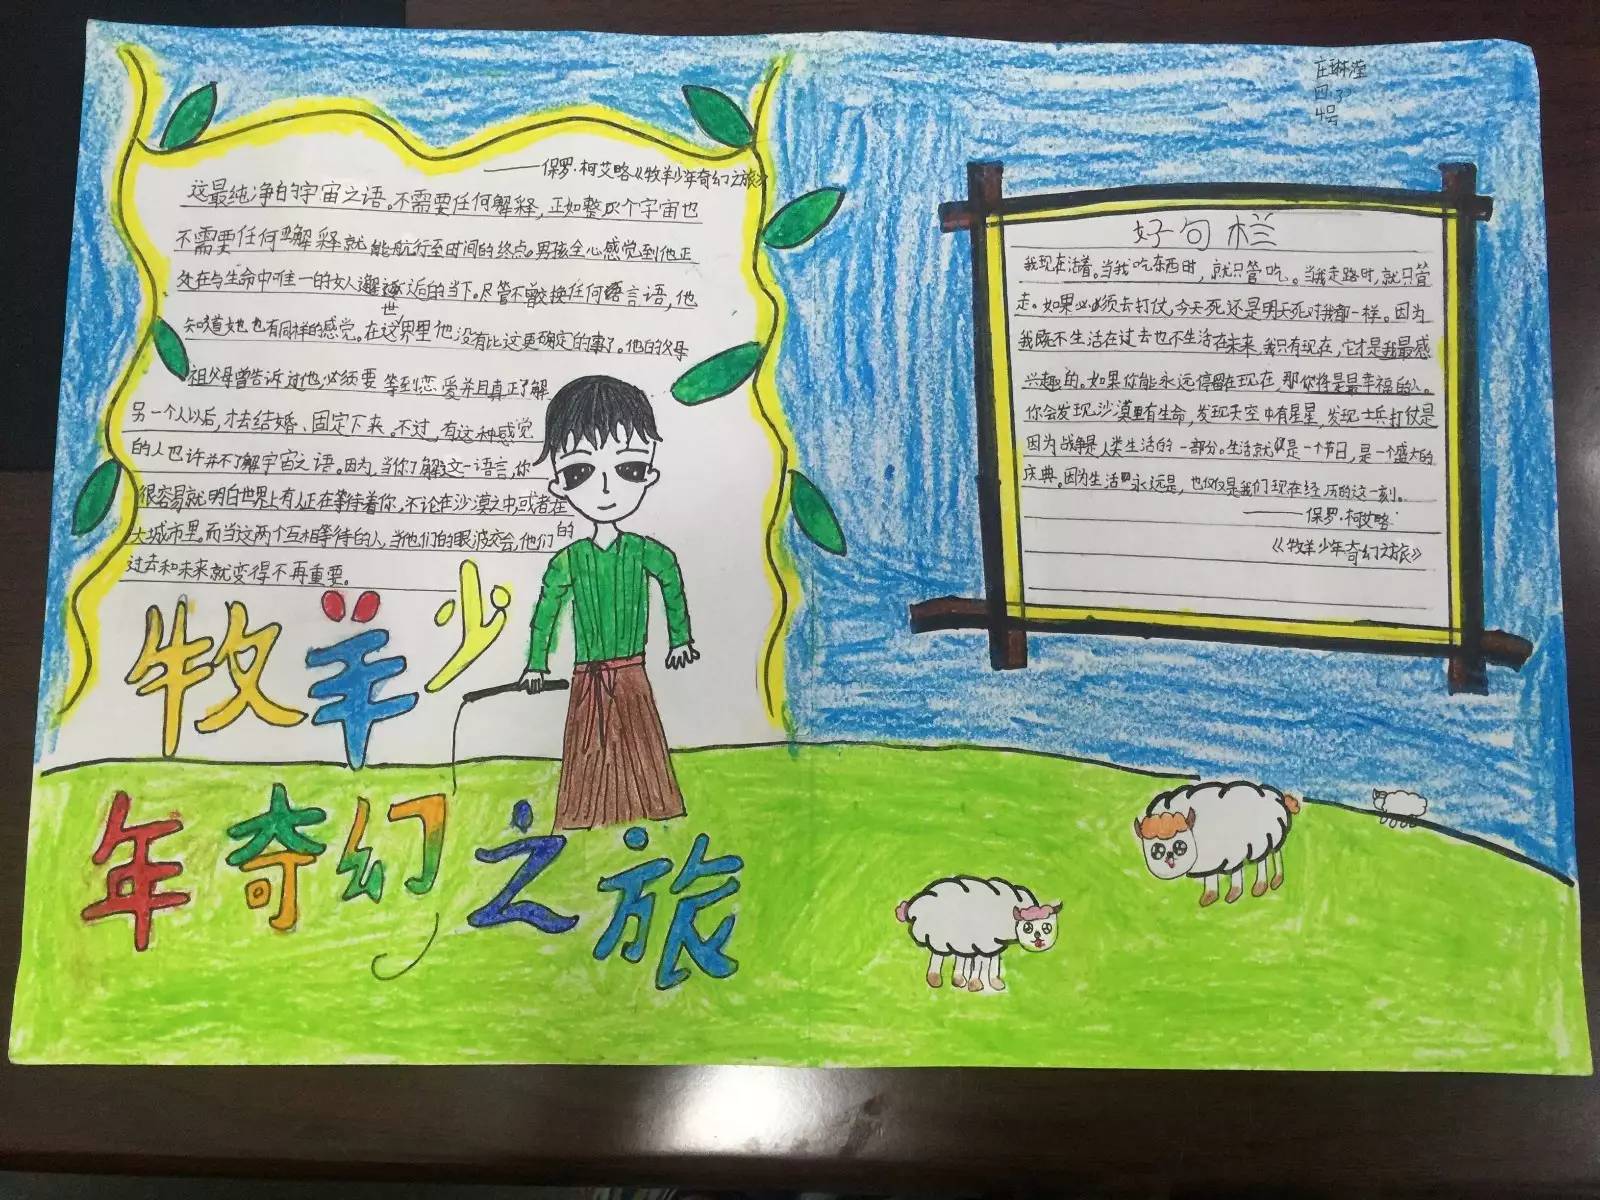 ——保罗·柯艾略《牧羊少年奇幻之旅》
这最纯净的宇宙之语。不需要任何解释,正如整个宇宙也
不需要任何解释就能航行至时间的终点。男孩全心感觉到他正
处在与生命中唯一的女人邂逅的当下。尽管不曾交换任何语言,他
知道她也有同样的感觉。在这世界里他没有比这更确定的事了。他的父母
祖父母曾告诉过他必须要等到恋爱并且真正了解
另一个人以后,才去结婚、固定下来。不过,有这种感觉
的人也许并不了解宇宙之语。因为,当你了解这一语言,你
很容易就明白世界上有人正在等待着你,不论在沙漠之中,或者在
大城市里。而当这两个互相等待的人,当他们的眼波交会,他们的
过去和未来就变得不再重要。
牧羊少
年奇幻之旅
庄琳滢
四.3
4号
好句栏
我现在活着。当我吃东西时,就只管吃。当我走路时,就只管
走。如果必须去打仗,今天死还是明天死对我都一样。因为
我既不生活在过去也不生活在未来,我只有现在,它才是我最感
兴趣的。如果你能永远停留在现在,那你将是最幸福的人。
你会发现沙漠里有生命,发现天空中有星星,发现士兵打仗是
因为战争是人类生活的一部分。生活就是一个节日,是一个盛大的
庆典。因为生活永远是,也仅仅是我们现在经历的这一刻。
——保罗·柯艾略
《牧羊少年奇幻之旅》